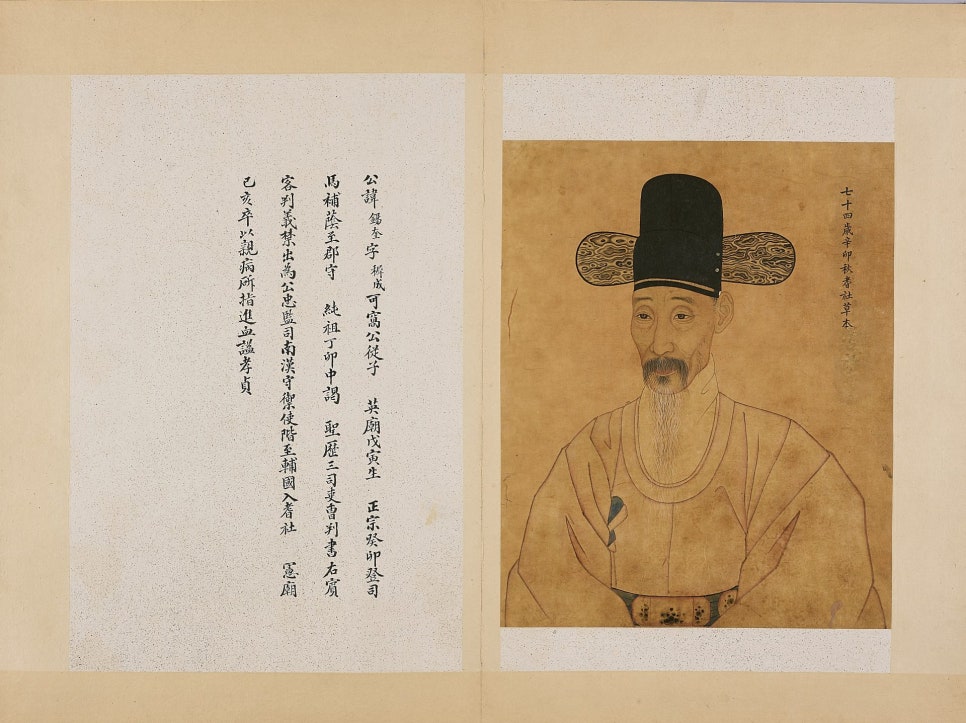 七十四歲辛卯秋耆社草本
公諱錫奎字穉成可窩公從子 英廟戊寅生 正宗癸卯登司
馬補蔭至郡守 純祖丁卯中謁 聖歷三司吏曹判書右賓
客判義禁出為公忠監司南漢守禦使階至輔國入耆社 憲廟
己亥卒以親病斫指進血諡孝貞